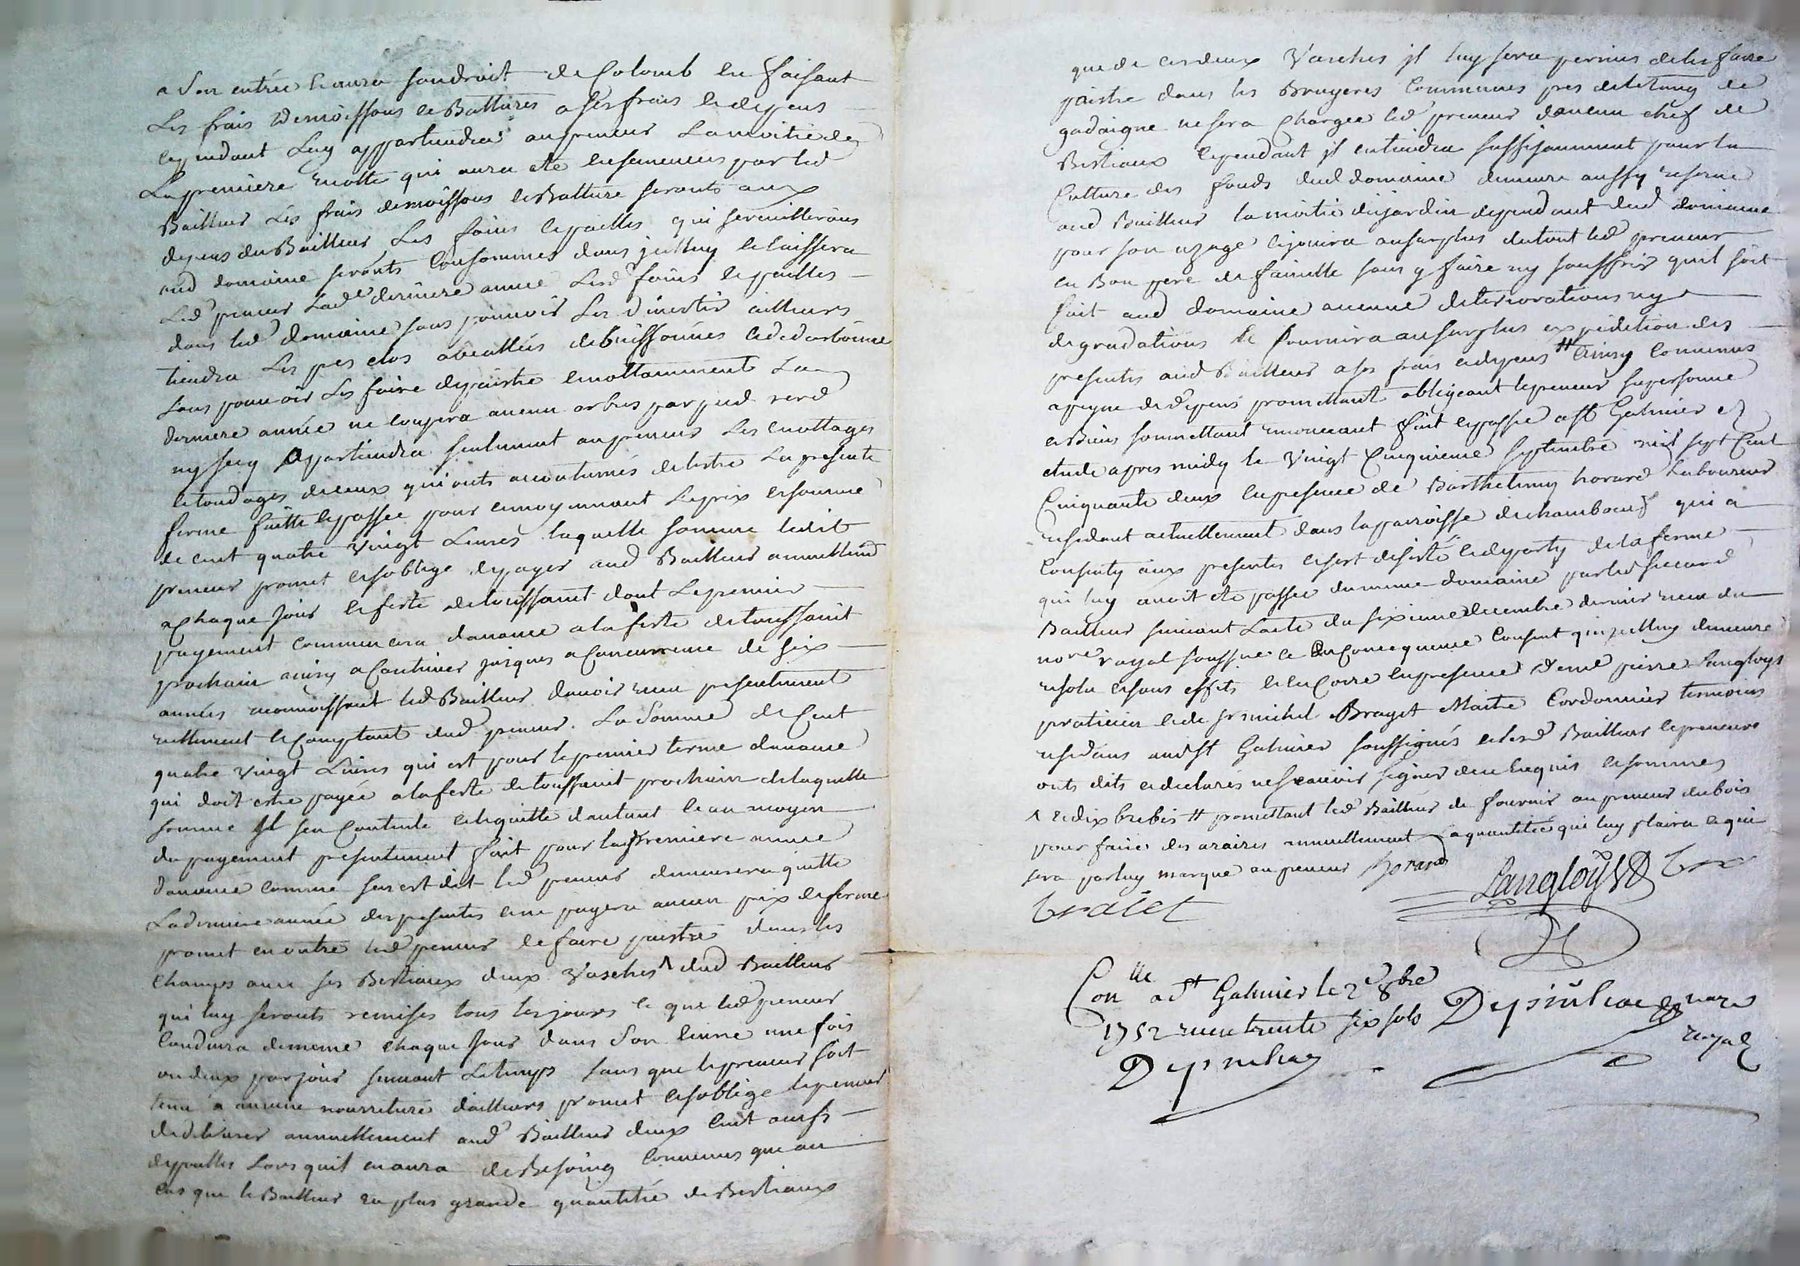 a son entrée et aura son droit de Colomb en faisant
Les frais demoissons et Battures a ses frais et depens
cependant Luy appartiendra au preneur La moitie de
La premiere recolte qui aura eté ensemencée par led
Bailleur Les frais de moissons et Batture seronts aux
depens du Bailleur Les foins et pailles qui se recuilleronts
aud domaine seronts Consommés dans jcelluy et laissera
Led preneur Lad.e derniere année Lesd foins et pailles
dans led domaine sans pouvoir Les divertir ailleurs
tiendra Les prés clos debuissonnés
sans pouvoir Les faire depaistre et nottamment La
derniere année ne coupera aucun arbres par pied verd
ny secq appartiendra seulement au preneur Les emottages
et tondages de ceux qui onts accoutumés de lestre La presente
ferme faitte et passée pour et moyennant Le prix et somme
de cent quatre vingt Livres laquelle somme ledit
preneur promet et soblige de payer aud Bailleur annuellement
a chaque jour et feste de toussaint dont Le premier
payement commencera davance a la feste de toussaint
prochain ainsy a Continuer jusques a Concurrence de six
années reconnoissant led Bailleur davoir receu presentement
reellement et Comptant dud preneur. La somme de Cent
quatre vingt Livres qui est pour le premier terme davance
qui doit estre payée a la feste de toussaint prochain de laquelle
somme Jl sen Contente et le quitte dautant et au moyen
du payement presentement fait pour la premiere année
davance comme sus est dit led preneur demeurera quitte
La derniere année des presentes et ne payera aucun prix de ferme
promet en outre led preneur de faire paistre dans les
Champs avec ses Bestiaux deux Vasches ^ dud Bailleur
qui luy seronts remises tous les jours et que led preneur
Conduira de meme chaque jour dans son une fois
ou deux par jour suivant Le temps sans que le preneur soit
tenu a aucune nourriture dailleurs promet et soblige le preneur
de delivrer annuellement aud Bailleur deux Cent
de pailles Lors quil en aura de Besoing Convenus que au
Cas que le Bailleur eu plus grande quantité de Bestiaux
que de ces deux Vasches jl luy sera permis de les faire
paistre dans les Bruyeres Communes pres de letang de
gadaigne ne sera Chargée led preneur daucun chef de
Bestiaux cependant jl en tiendra suffisamment pour la
Culture des fonds dud domaine demeure aussy reservé
aud Bailleur la moitié du jardin dependant dud domaine
pour son uzage et jouira au surplus du tout led preneur
en Bon pere de famille sans y faire ny souffrir quil soit
fait aud domaine aucune deteriorations ny
degradations et fournira au surplus expedition des
presentes aud Bailleur a ses frais et depens # ainsy Convenus
a peyne de depens promettant obligeant le preneur sa personne
et Biens soumettant renonceant fait et passé a St Galmier en
etude apres midy le Vingt Cinquieme septembre mil sept Cent
Cinquante deux en presence de Barthelemy horard Laboureur
residant actuellement dans la parroisse de chambœuf qui a
Consenty aux presentes et sest desisté et departy de la ferme
qui luy avoit eté passée du meme domaine par led
Bailleur suivant Lacte du sixieme decembre dernier receu du
no.re royal soussigné et en Consequence Consent quicelluy demeure
resolu et sans effets et en Corre en presence de me pierre Langloys
praticien et de sr michel Brayet Maitre Cordonnier temoins
residents aud St Galmier soussignés et lesd Bailleur et preneur
onts dits et declarés ne scavoir signer de ce enquis et sommés
^ et dix brebis # promettant led Bailleur de fournir au preneur du bois
pour faire des araires annuellement La quantitée qui luy plaira et qui
sera par luy marqué au preneur horard
Langloys
Con.lle a St Galmier le 2e 8bre
1752 receu trente six sols
royal